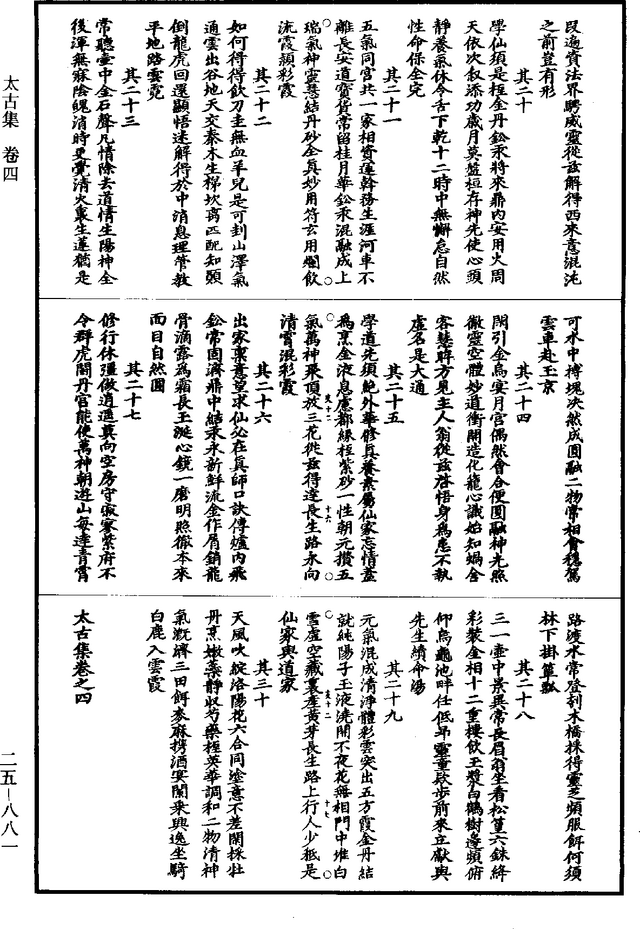 太古集 卷四
段遍資法界聘威靈從茲解得西來意混沌
之前豈有形
其二十
學仙須是程金丹鈆汞將來鼎内安用火周
天依次敘添功歲月莫盤桓存神先使心頭
靜養氣休令舌下乾十二時中無懈怠自然
性命保全完
其二十一
五氣同宫共一家相資運斡務生涯河車不
離長安道寶貨常留桂月華鈆汞混融成上
瑞氣神靈慧結丹砂全真妙用符玄用爛飲
流霞顏彩霞
其二十二
如何得得飲刀圭無血羊兒是可刲山澤氣
通雲出谷地天交泰木生梯坎离匹配知顛
倒龍虎回還顯悟迷解得於中消息理管教
平地踏雲霓
其二十三
常聽壺中金石聲凡情除去道情生陽神全
後渾無寐陰魄消時更覺清火裏生蓮猶是
可水中搏塊决然成圓融二物常相會穩駕
雲車赴玉京
其二十四
閑引金烏宴月宫偶然會合便圓融神光照
徹靈空體妙道衝開造化籠心識始知蝸舍
客慧眸方見主人翁從茲啓悟身爲患不執
虚名是大通
其二十五
學道先須絶外華修真養素屬仙家忘情蓋
爲烹金液息慮都緣程紫砂一性朝元攢五
氣萬神飛頂放三花從茲得達長生路永向
清霄混彩霞
其二十六
出家稟意望求仙必在真師口訣傳爐内飛
鈆常固濟鼎中結汞永新鮮流金作屑銷龍
骨滴露爲霜長玉涎心鏡一磨明照徹本來
面目自然圓
其二十七
修行休强做逍遥莫向空房守寂寥紫府不
令群虎鬧丹宫能使萬神朝遊山每達青霄
路渡水常登刳木橋採得靈芝頻服餌何須
林下掛簞瓢
其二十八
三一壺中景異常長眉翁坐看松篁六銖絳
彩裝金相十二重樓飲玉漿白鶴樹邊頻俯
仰烏龜池畔任低昂靈童啟步前來立獻與
先生續命陽
其二十九
元氣混成清淨體彩雲突出五方霞金丹結
就純陽子王液洗開不夜花無相門中堆白
雪虚空藏裏産黄芽長生路上行人少祇是
仙家與道家
其三十
天風吹綻洛陽花六合同塗意不差閑採牡
丹烹嫩蘂靜收芍藥程英華調和二物清神
氣溉濟三田餌麥麻携酒宴闌乘興逸坐騎
白鹿入雲霞
太古集卷之四
二五－八八一